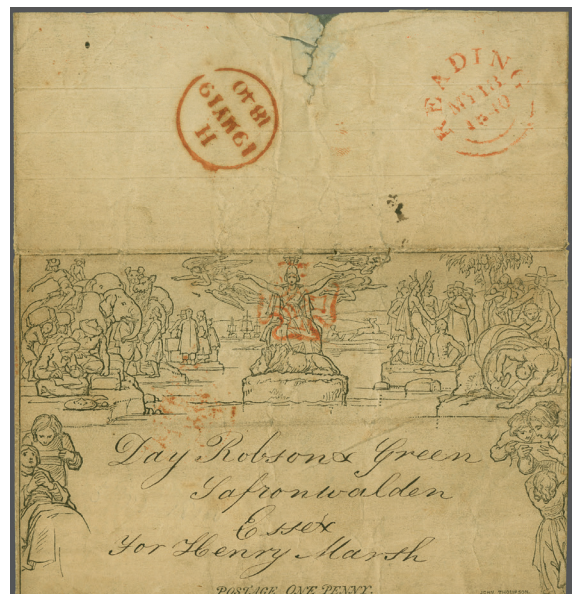 H
19MY19
1840
READING
MY 18
1840
Day Robson & Green
Safronwalden
Essex
for Henry Marsh
POSTAGE ONE PENNY.
JOHN THOMPSON